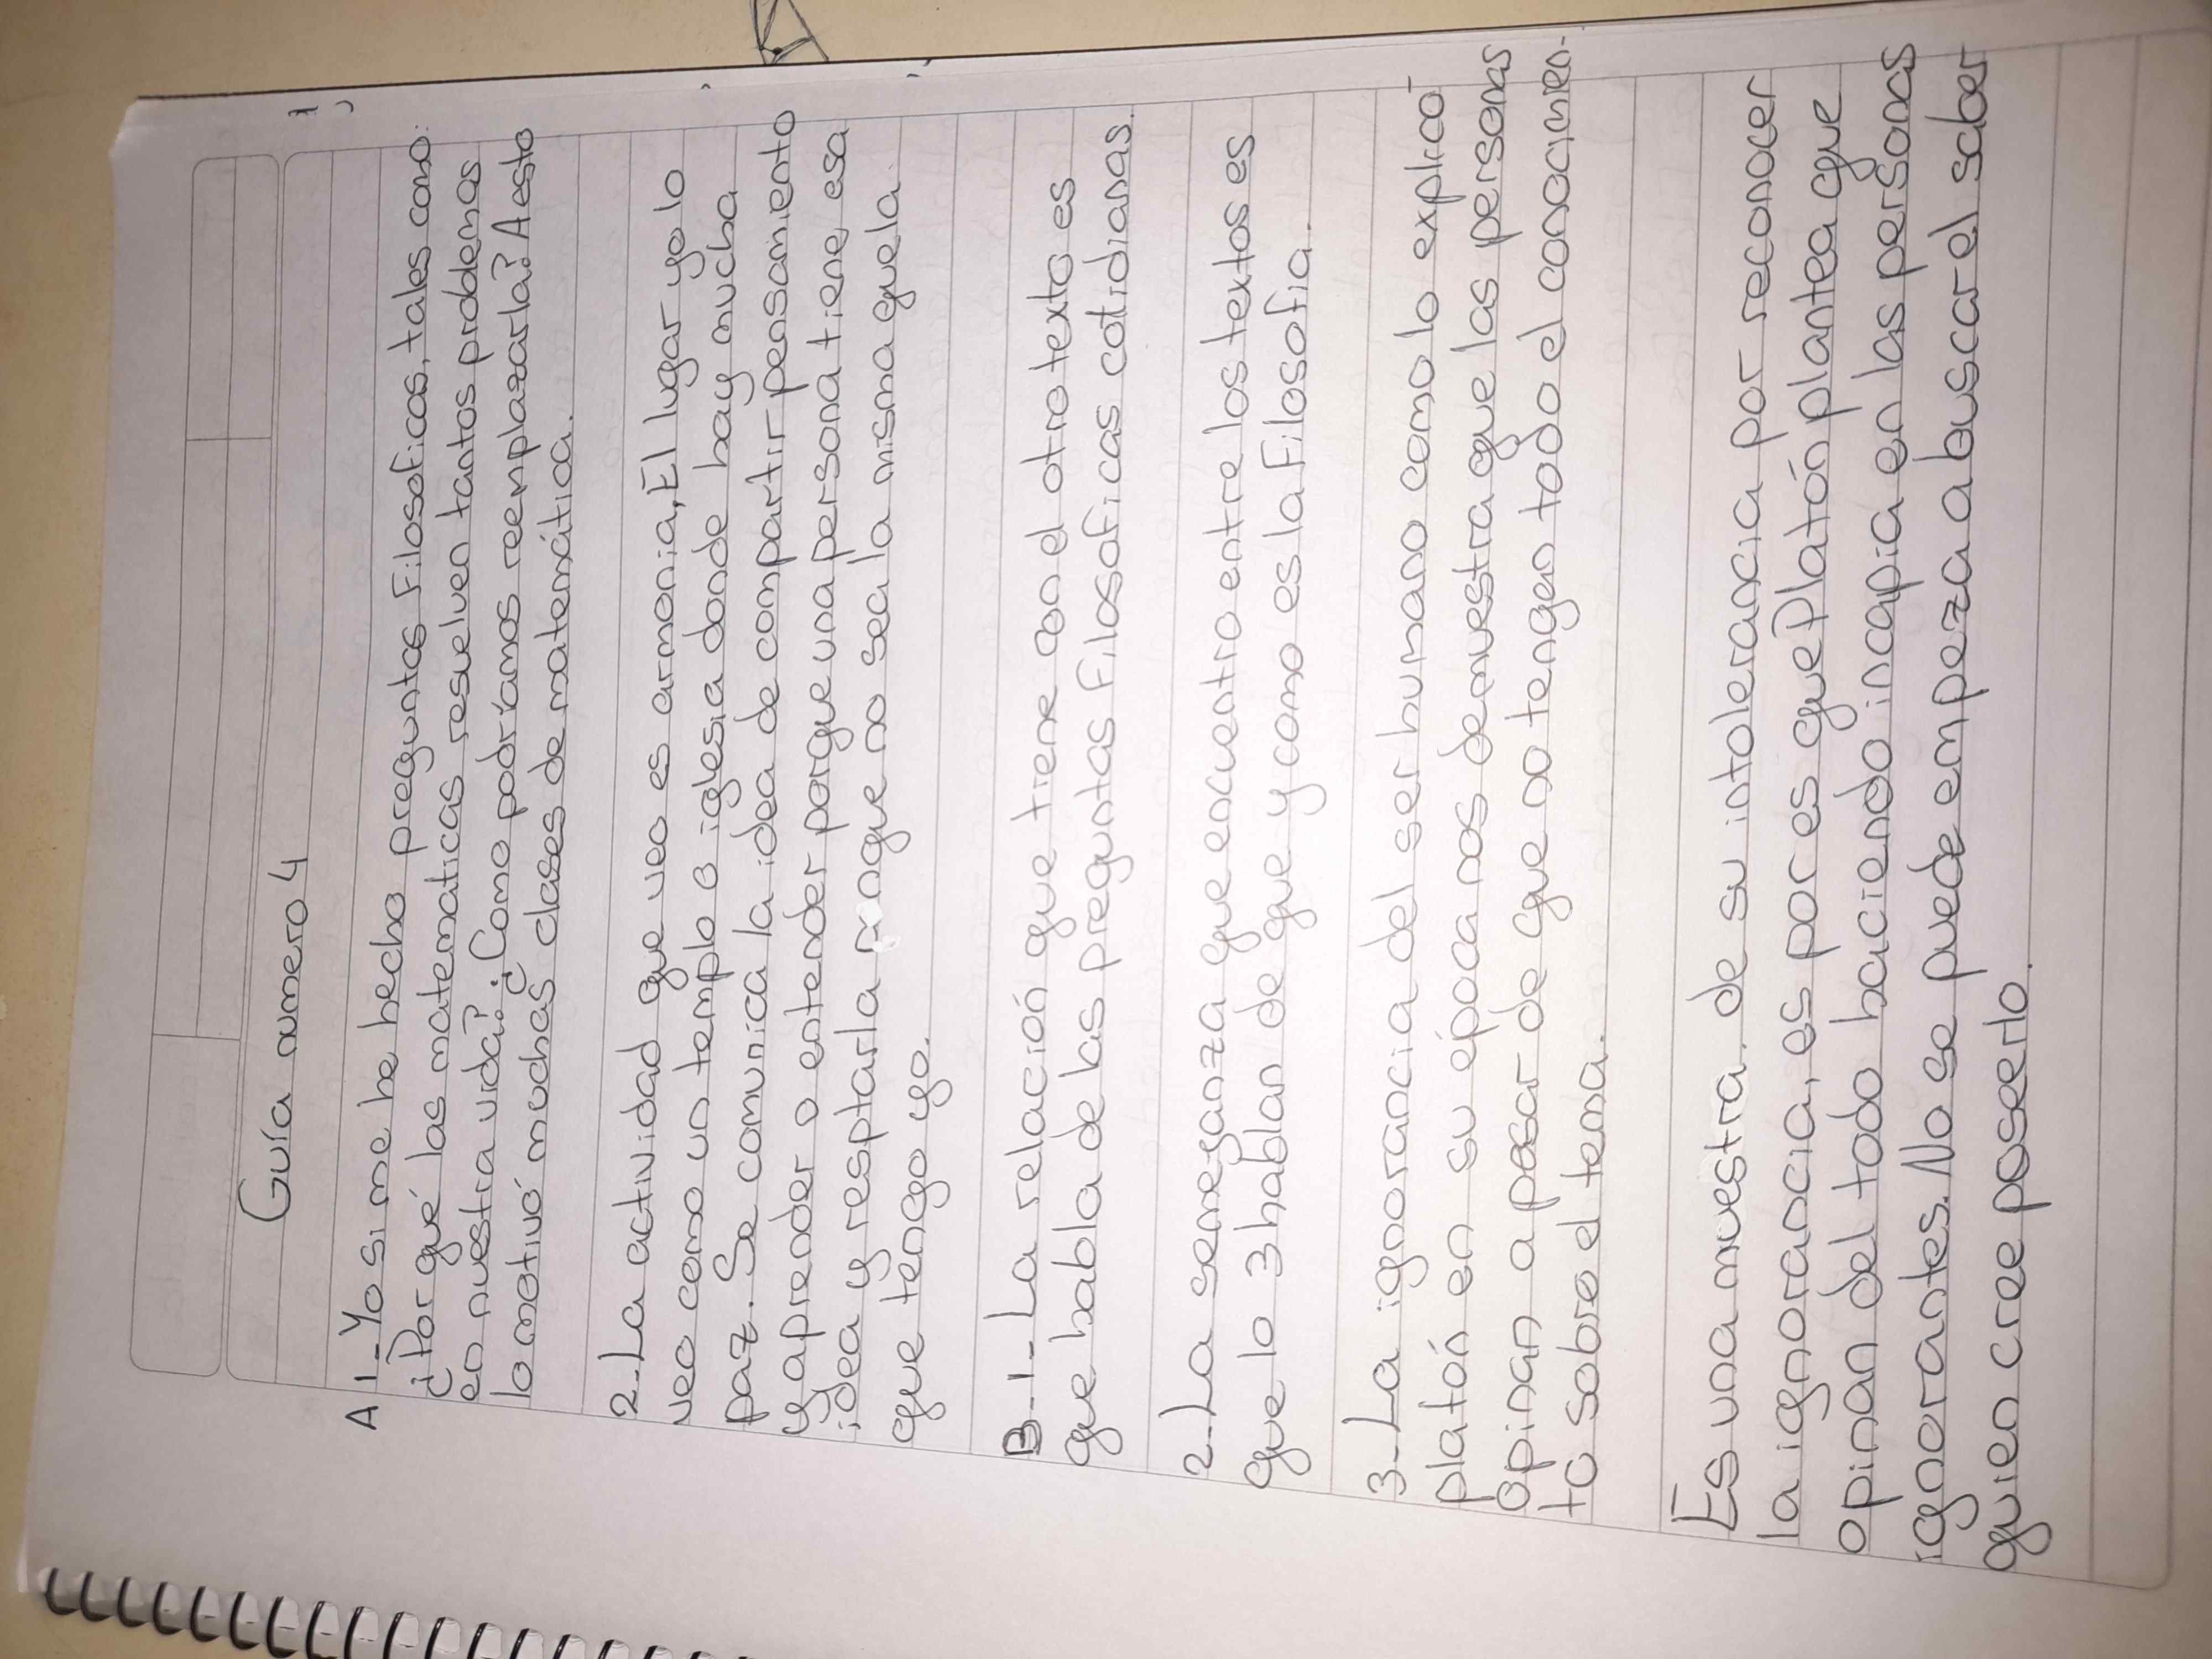 Guía numero 4
A 1-Yo si me he hecho preguntas Filosoficas, tales como:
¿Por qué las matematicas resuelven tantos problemas
en nuestra vida? ¿Como podríamos reemplazarla? A esto
lo motivó muchas clases de matemática.
2-La actividad que veo es armonia, El lugar yo lo
veo como un templo o iglesia donde hay mucha
paz. Se comunica la idea de compartir pensamiento
y aprender o entender porque una persona tiene esa
idea y resptarla aunque no sea la misma quela
que tengo yo.
B-1-La relación que tiene con el otro texto es
que habla de las preguntas Filosoficas cotidianas.
2-La semeganza que encuentro entre los textos es
que lo 3 hablan de que y como es la Filosofia.
3-La ignorancia del ser humano como lo explicó
platón en su época nos demuestra que las personas
opinan a pesar de que no tengan todo el conocimien-
to sobre el tema.
Es una muestra de su intolerancia por reconocer
la ignorancia, es por es que Platón plantea que
opinan del todo haciendo incapia en las personas
ignorantes. No se puede empeza a buscar el saber
quien cree poseerlo.